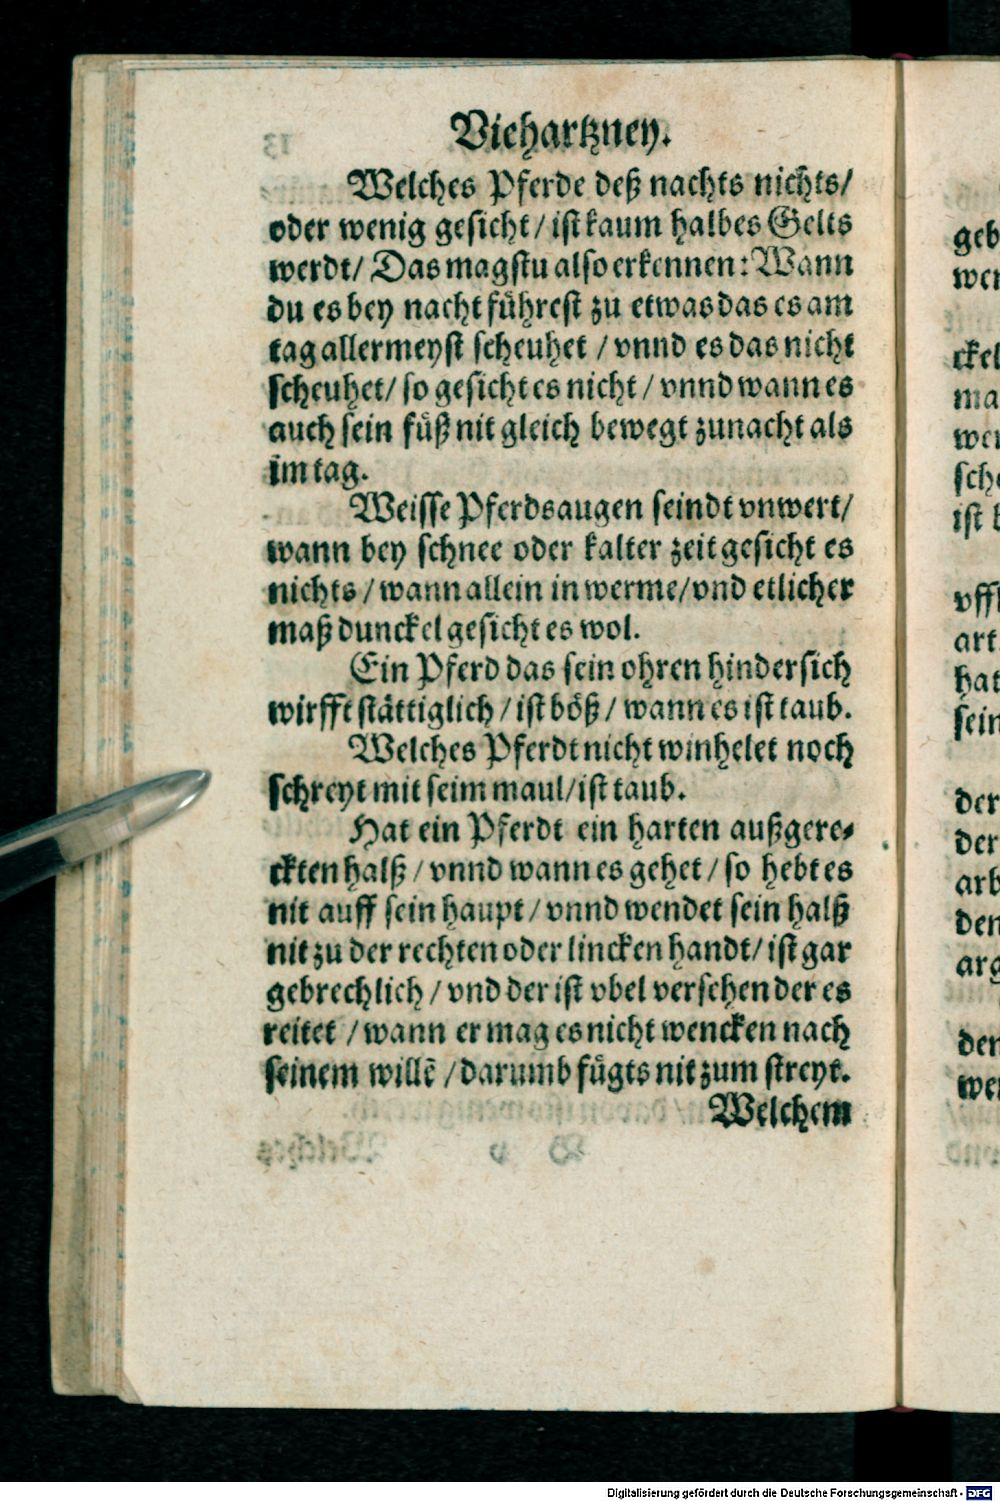 Viehartzney.
Welches Pferde deß nachts nichts/
oder wenig gesicht / ist kaum halbes Gelts
werdt/ Das magstu also erkennen: Wann
du es bey nacht führest zu etwas das es am
tag allermeyst scheuhet / vnnd es das nicht
scheuhet/ so gesicht es nicht / vnnd wann es
auch sein füß nit gleich bewegt zunacht als
im tag.
Weisse Pferdsaugen seindt vnwert/
wann bey schnee oder kalter zeit gesicht es
nichts / wann allein in werme/vnd etlicher
maß dunckel gesicht es wol.
Ein Pferd das sein ohren hindersich
wirfft stättiglich / ist böß / wann es ist taub.
Welches Pferdt nicht winhelet noch
schreyt mit seim maul/ist taub.
Hat ein Pferdt ein harten außgere⸗
ckten halß / vnnd wann es gehet / so hebt es
nit auff sein haupt / vnnd wendet sein halß
nit zu der rechten oder lincken handt/ ist gar
gebrechlich / vnd der ist vbel versehen der es
reitet / wann er mag es nicht wencken nach
seinem willē / darumb fügts nit zum streyt.
Welchem
geb
wer
ckel
ma
wer
sche
ist
vff
art
hat
sein
der
der
arb
den
arg
den
wer
Digitalisierung gefördert durch die Deutsche Forschungsgemeinschaft - DFG